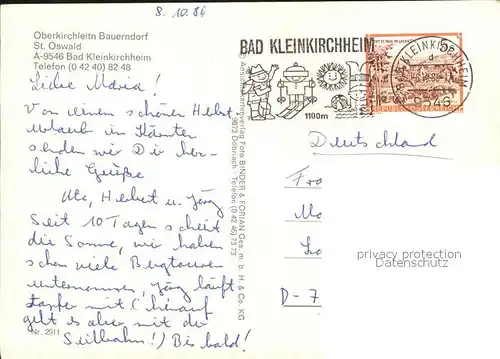 8. 10. 86
Oberkirchleitn Bauerndorf
St. Oswald
A-9546 Bad Kleinkirchheim
Telefon (0 42 40) 82 48
Liebe Maria!
Von einem schönen Herbst-
urlaub in Kärnten
senden wir Dir herz-
liche Grüße
Ute, Herbert u. Jörg
Seit 10 Tagen scheint
die Sonne, wir haben
schon viele Bergtouren
unternommen, Jörg läuft
tapfer mit (herauf
geht es aber mit der
Seilbahn!) Bis bald!
Nr. 2911
Ansichtskartenverlag Foto BINDER & FORIAN Ges. m. b. H. & Co. KG
9873 Döbriach - Telefon (0 42 46) 73 73
BAD KLEINKIRCHHEIM
1100m
5
BAD KLEINKIRCHHEIM
9546
Deutschland
Fra
Ma
D-7
privacy protection
Datenschutz